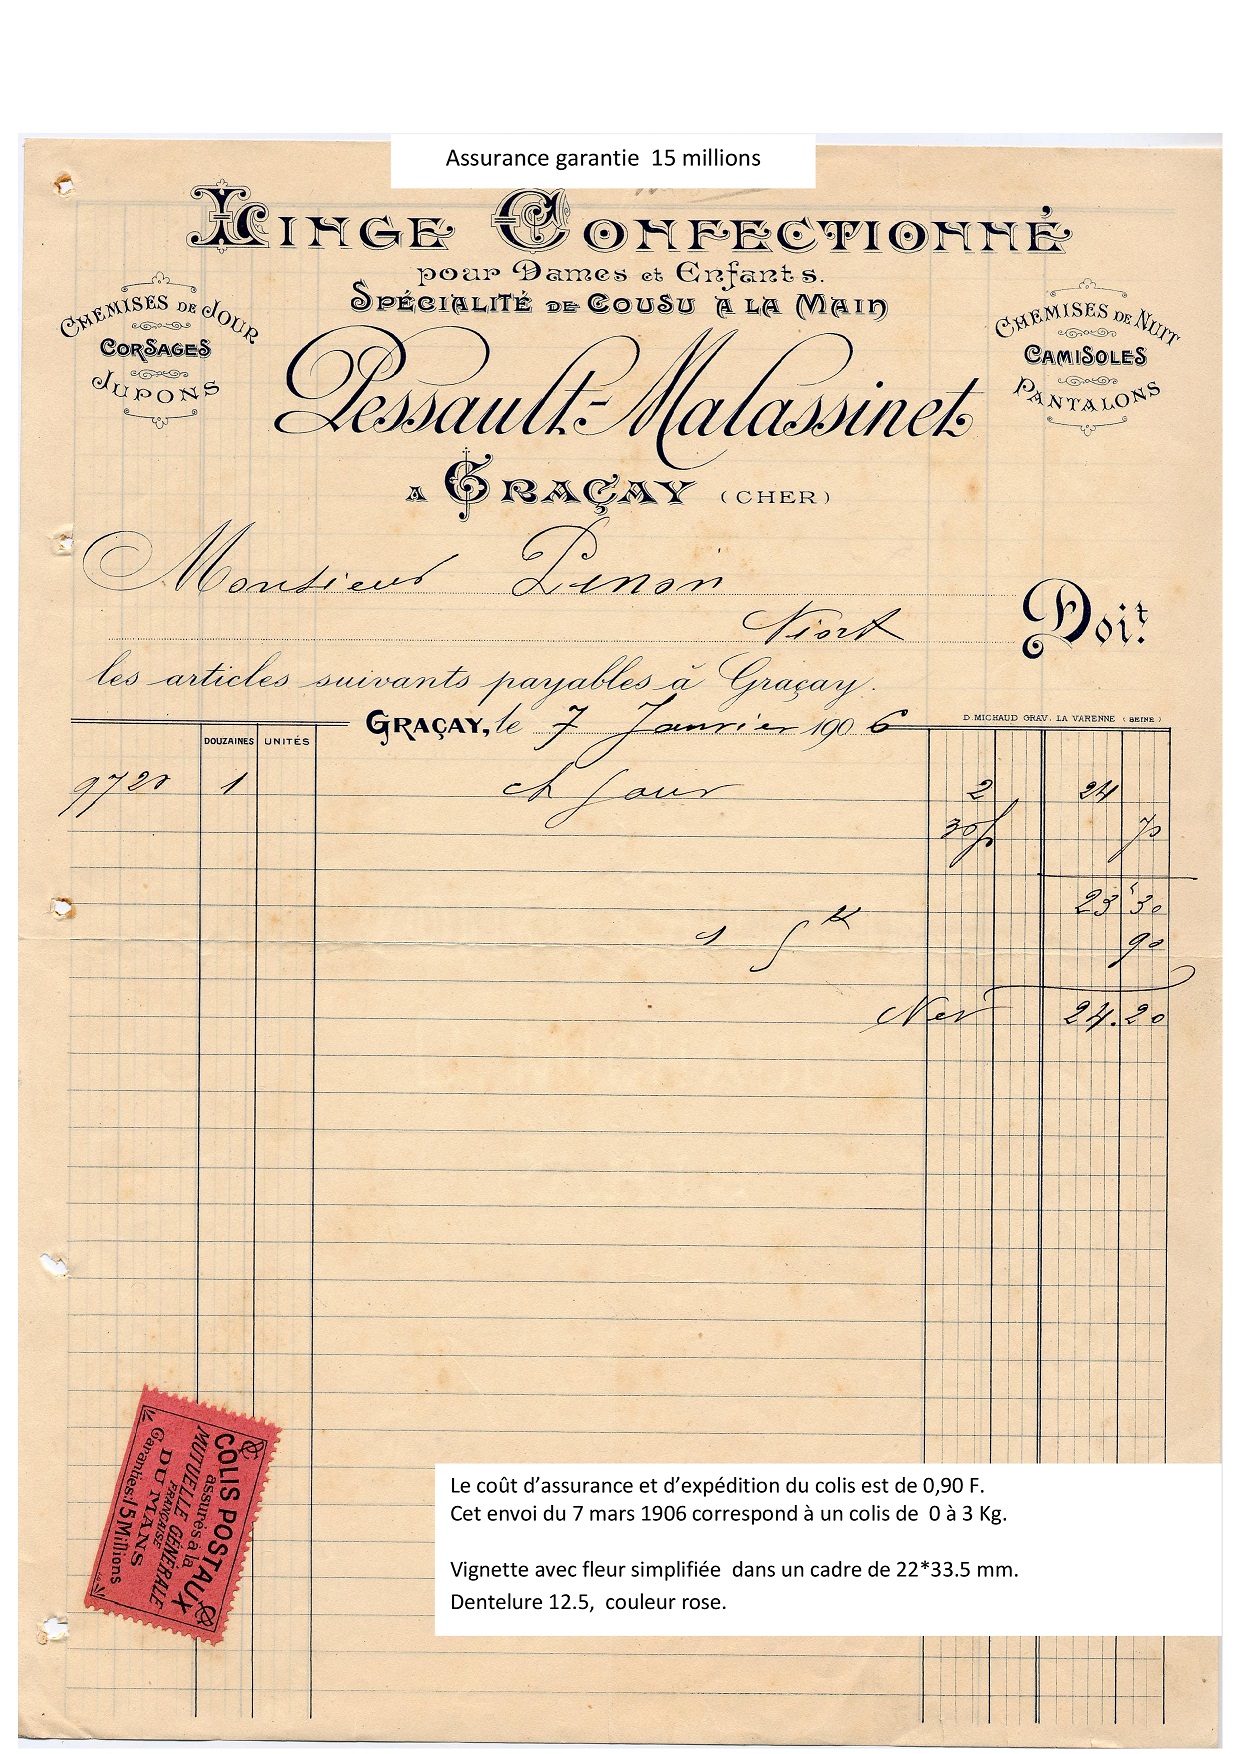 Assurance garantie 15 millions
LINGE CONFECTIONNÉ
pour Dames et Enfants.
SPÉCIALITÉ DE COUSU A LA MAIN
CHEMISES DE JOUR
CORSAGES
JUPONS
CHEMISES DE NUIT
CAMISOLES
PANTALONS
Pessault-Malassinet
A GRAÇAY (CHER)
Monsieur Pinon
Niort
Doit
les articles suivants payables à Graçay.
GRAÇAY, le 7 Janvier 1906
D. MICHAUD GRAV. LA VARENNE (SEINE)
DOUZAINES UNITÉS
9720 1 ch jour 2 24
70
23 30
1 90
Net 24.20
COLIS POSTAUX
assurés à la
MUTUELLE GÉNÉRALE
FRANÇAISE
DU MANS
Garanties: 15 Millions
Le coût d’assurance et d’expédition du colis est de 0,90 F.
Cet envoi du 7 mars 1906 correspond à un colis de 0 à 3 Kg.
Vignette avec fleur simplifiée dans un cadre de 22*33.5 mm.
Dentelure 12.5, couleur rose.